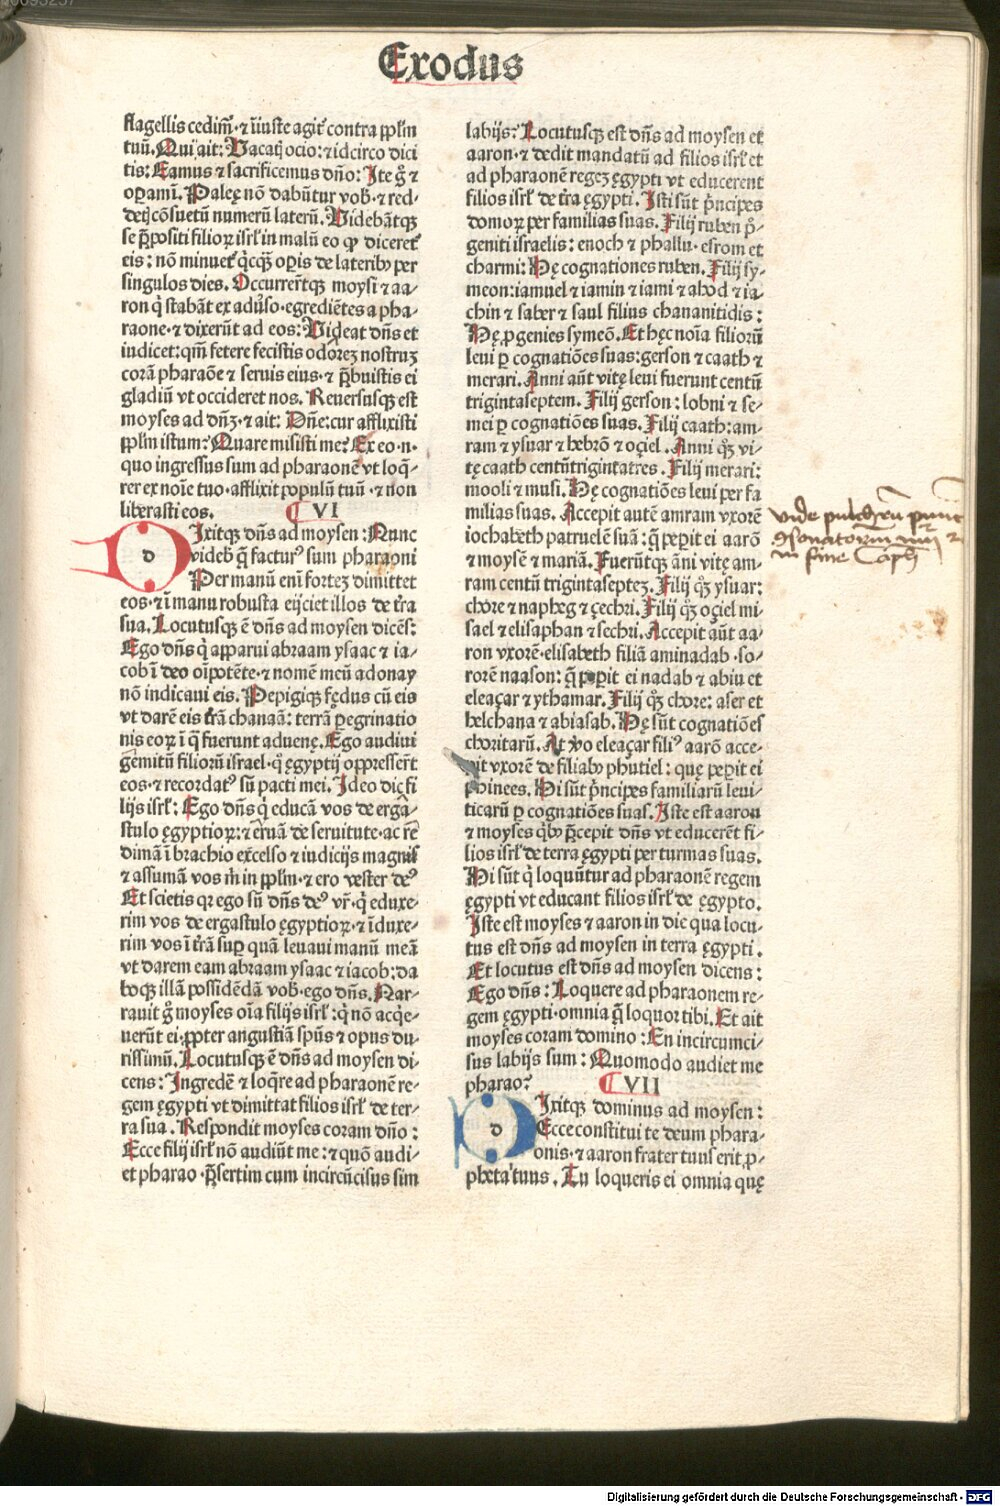 Exodus
flagellis cedimᷣ·⁊ iniuste agit᷑ contra ppl̄m
tuū. Qui ait: Vacatꝭ ocio: ⁊ idcirco dici
tis: Eamus ⁊ sacrificemus dño: Ite g̊ ⁊
oꝑamī. Paleę nō dabūtur vob̄·⁊ red-
detꝭ cōsuetū numerū laterū. Videbātqꝫ
se p̄positi filioꝝ isrl̄ in malū eo ꝙ diceret᷑
eis: nō minuet᷑ q̄cqꝫ oꝑis de lateribꝰ per
singulos dies. Occurrerūtqꝫ moysi ⁊ aa-
ron q̇ stabāt ex aduſo·egrediētes a pha-
raone·⁊ dixerūt ad eos: Videat dñs et
iudicet: qm̄ fetere fecistis odorēꝫ nostruꝫ
corā pharaōe ⁊ seruis eius·⁊ p̄buistis ei
gladiū vt occideret nos. Reuersusqꝫ est
moyses ad dñꝫ·⁊ ait: Dñe: cur afflixisti
ppl̄m istum? Quare misisti me? Ex eo.n.
quo ingressus sum ad pharaonē vt loq̄-
rer ex noīe tuo·afflixit populū tuū·⁊ non
liberasti eos. VI
d
Ixitqꝫ dñs ad moysen: Nunc
videb̄ q̄ facturꝰ sum pharaoni
Per manū enī fortēꝫ dimittet
eos·⁊ ī manu robusta eijciet illos de t̄ra
sua. Locutusqꝫ ē dñs ad moysen dicēs:
Ego dñs q̇ apparui abraam ysaac ⁊ ia-
cob ī deo oīpotēte·⁊ nomē meū adonay
nō indicaui eis. Pepigiqꝫ fędus cū eis
vt darē eis t̄rā chanaā: terrā ꝑegrinatio
nis eoꝝ ī q̄ fuerunt aduenę. Ego audiui
gēmitū filiorū israel·q̇ ęgyptij oppresserūt
eos·⁊ recordatꝰ sū pacti mei. Ideo dic fi
lijs isrl̄: Ego dñs q̇ educā vos de ergā-
stulo ęgyptioꝝ: ⁊ eruā de seruitute·ac re
dimā ī brachio excelso ⁊ iudicijs magnis
⁊ assumā vos m̄ in ppl̄m·⁊ ero vester deꝰ
Et scietis qꝛ ego sū dñs deꝰ vr̄·q̇ eduxe-
rim vos de ergastulo ęgyptioꝝ·⁊ īduxe-
rim vos ī t̄rā suꝑ quā leuaui manū meā
vt darem eam abraam ysaac ⁊ iacob: da
boqꝫ illā possidēdā vob̄·ego dñs. Nar-
rauit g̊ moyses oīa filijs isrl̄: q̇ nō acq̇e-
uerūt ei·ꝓpter angustiā spūs ⁊ opus du-
rissimū. Locutusqꝫ ē dñs ad moysen di-
cens: Ingredē ⁊ loq̄re ad pharaonē re-
gem ęgypti vt dimittat filios isrl̄ de ter-
ra sua. Respondit moyses coram dño:
Ecce filij isrl̄ nō audiūt me: ⁊ quō audi-
et pharao·p̄sertim cum incircūcisus sim
labijs? Locutusqꝫ est dñs ad moysen et
aaron·⁊ dedit mandatū ad filios isrl̄ et
ad pharaonē regeꝫ ęgypti vt educerent
filios isrl̄ de t̄ra ęgypti. Isti sūt p̄ncipes
domoꝝ per familias suas. Filij ruben p̄-
geniti israelis: enoch ⁊ phallu·esrom et
charmi: Hę cognationes ruben. Filij sy-
meon: iamuel ⁊ iamin ⁊ iami ⁊ ahod ⁊ ia-
chin ⁊ saber ⁊ saul filius chananitidis:
Hę ꝓgenies symeō. Et hęc noīa filiorū
leui ꝑ cognatiōes suas: gerson ⁊ caath ⁊
merari. Anni aūt vitę leui fuerunt centū
trigintaseptem. Filij gerson: lobni ⁊ se-
mei ꝑ cognatiōes suas. Filij caath: am-
ram ⁊ ysuar ⁊ hebrō ⁊ oçiel. Anni qꝫ vi-
tę caath centūtrigintatres. Filij merari:
mooli ⁊ musi. Hę cognatiōes leui per fa
milias suas. Accepit autē amram vxorē
iochabeth patruelē suā: q̄ peꝑit ei aarō
⁊ moysē ⁊ mariā. Fuerūtqꝫ āni vitę am-
ram centū trigintasepteꝫ. Filij qꝫ ysuar:
chore ⁊ napheg ⁊ çechri. Filij qꝫ oçiel mi-
sael ⁊ elisaphan ⁊ sechri. Accepit aūt aa-
ron vxorē·elisabeth filiā aminadab·so-
rorē naason: q̄ peꝑit ei nadab ⁊ abiu et
eleaçar ⁊ ythamar. Filij qꝫ chore: aser et
helchana ⁊ abiasab. Hę sūt cognatiōes
choritarū. At ꝟo eleaçar filiꝰ aarō acce-
pit vxorē de filiabꝰ phutiel: quę peꝑit ei
phinees. Hi sūt p̄ncipes familiarū leui-
ticarū ꝑ cognatiōes suas. Iste est aaron
⁊ moyses q̇bꝰ p̄cepit dñs vt educerēt fi-
lios isrl̄ de terra ęgypti per turmas suas.
Hi sūt q̇ loquūtur ad pharaonē regem
ęgypti vt educant filios isrl̄ de ęgypto.
Iste est moyses ⁊ aaron in die qua locu-
tus est dñs ad moysen in terra ęgypti.
Et locutus est dñs ad moysen dicens:
Ego dñs: Loquere ad pharaonem re-
gem ęgypti·omnia q̄ loquor tibi. Et ait
moyses coram domino: En incircumci-
sus labijs sum: Quomodo audiet me
pharao? VII
d
Ixitqꝫ dominus ad moysen:
Ecce constitui te deum phara-
onis·⁊ aaron frater tuus erit ꝓ-
pheta tuus. Tu loqueris ei omnia quę
vide pulchrū punct
in fine Caph
Digitalisierung gefördert durch die Deutsche Forschungsgemeinschaft - DFG